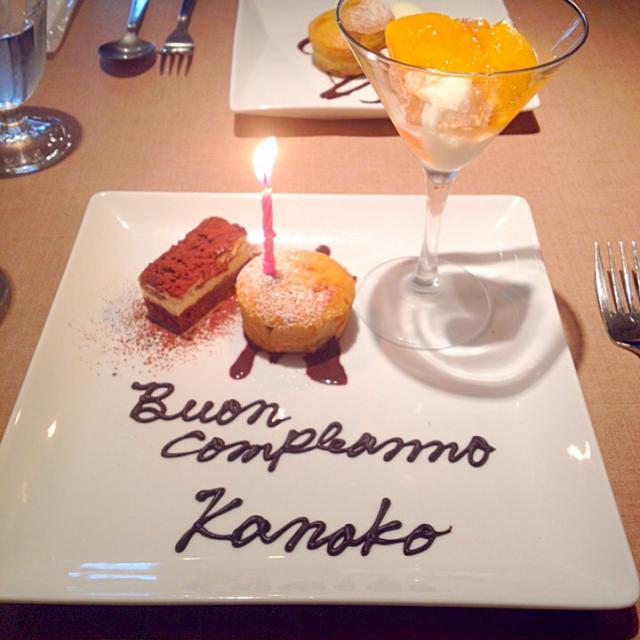 Buon
compleanno
Kanoko